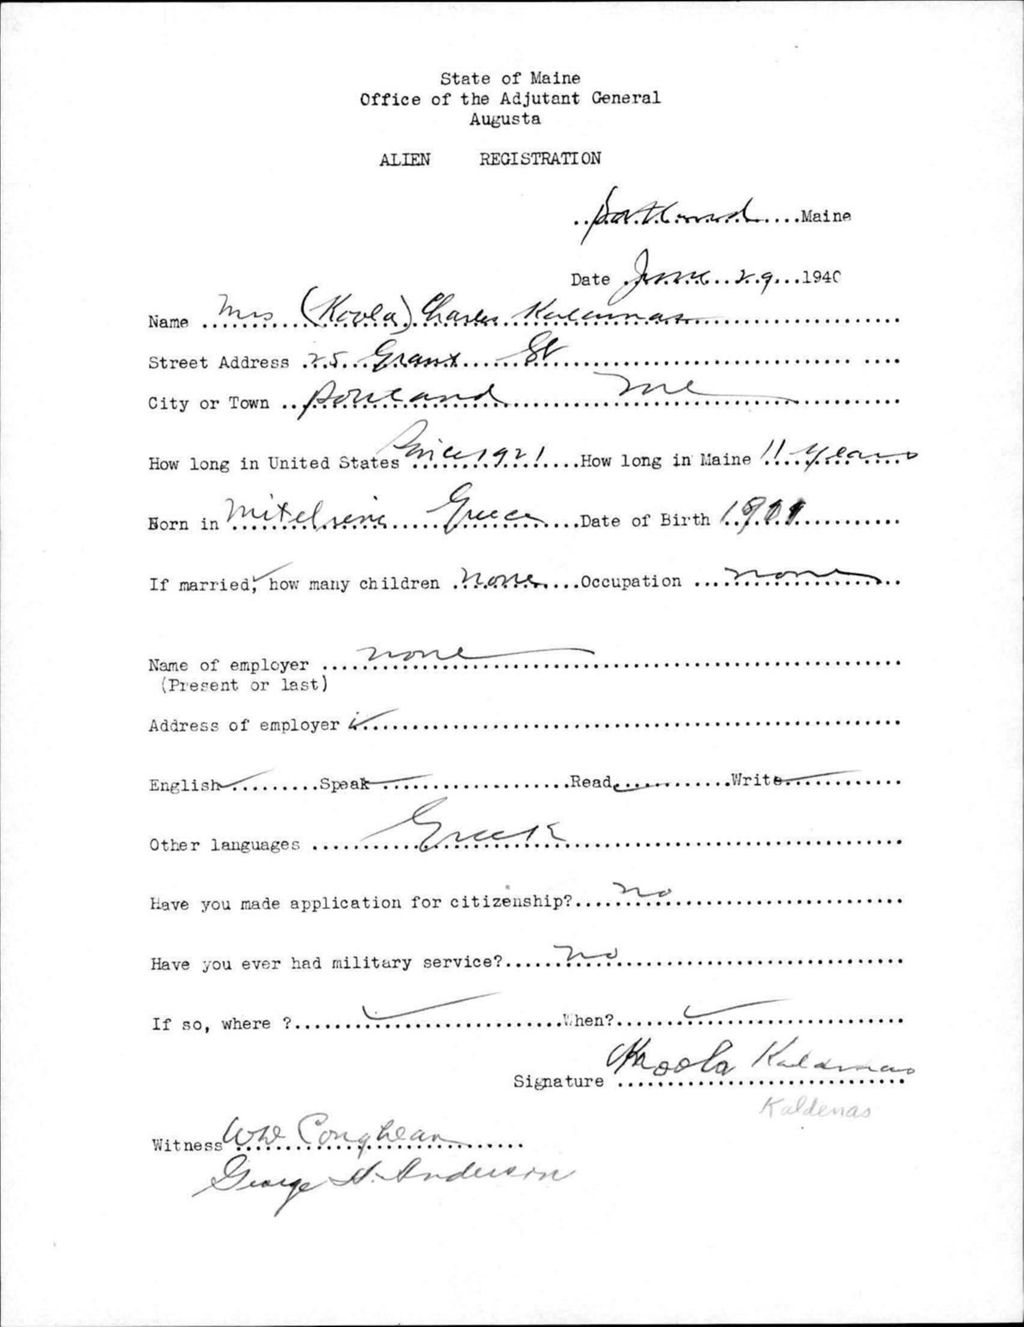 State of Maine
Office of the Adjutant General
Augusta
ALIEN REGISTRATION
Portland Maine
Date June 29 1940
Name Mrs (Koola) Charles
Street Address 25 Grant St
City or Town Portland Me
How long in United States Since 1921 How long in Maine 11 Years
Born in Greece Date of Birth
If married, how many children none Occupation none
Name of employer none
(Present or last)
Address of employer
English Speak Read Write
Other languages Greek
Have you made application for citizenship? no
Have you ever had military service? no
If so, where ? When?
Signature Koola
Kaldenas
Witness
George H. Anderson